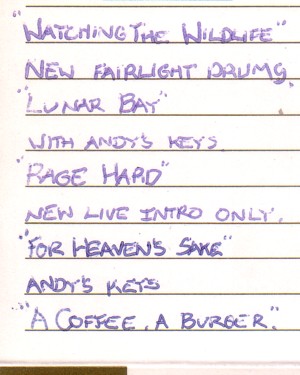 "WATCHING THE WILDLIFE"
NEW FAIRLIGHT DRUMS.
"LUNAR BAY"
WITH ANDY'S KEYS.
"RAGE HARD"
NEW LIVE INTRO ONLY.
"FOR HEAVEN'S SAKE"
ANDY'S KEYS
"A COFFEE, A BURGER."